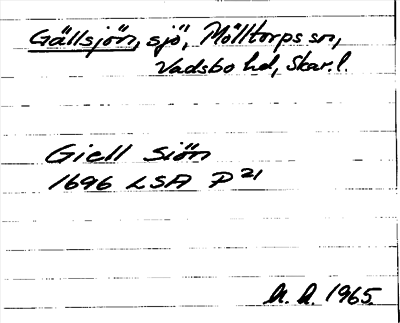 Gällsjön, sjö, Mölltorps sn,
Vadsbo hd, Skar. l.
Giell Siön
1696 LSA P 21
1965